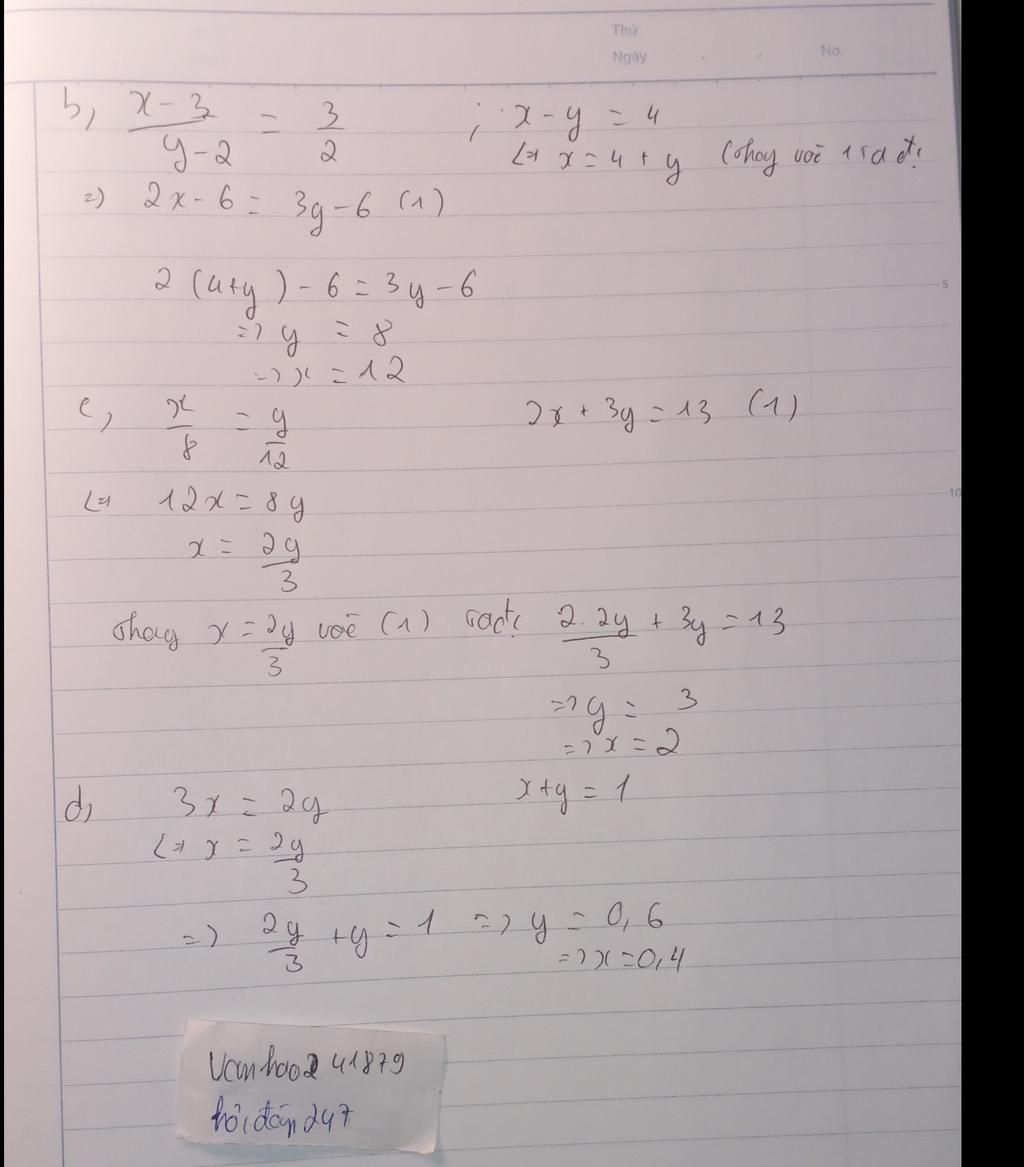 Thứ
Ngày . . No
b, x-3/y-2 = 3/2 ; x-y = 4
<=> x = 4 + y (thay vào 1 ta đc
=> 2x-6 = 3y-6 (1)
2(4+y)-6=3y-6
5
=> y = 8
=> x = 12
c, x/8 = y/12 2x + 3y = 13 (1)
<=> 12x = 8y
10
x = 2y/3
thay x = 2y/3 vào (1) ta đc 2.2y/3 + 3y = 13
=> y = 3
=> x = 2
d, 3x = 2y x+y = 1
<=> x = 2y/3
=> 2y/3 + y = 1 => y = 0,6
=> x = 0,4
Vanhao2 41879
hỏi đáp 247